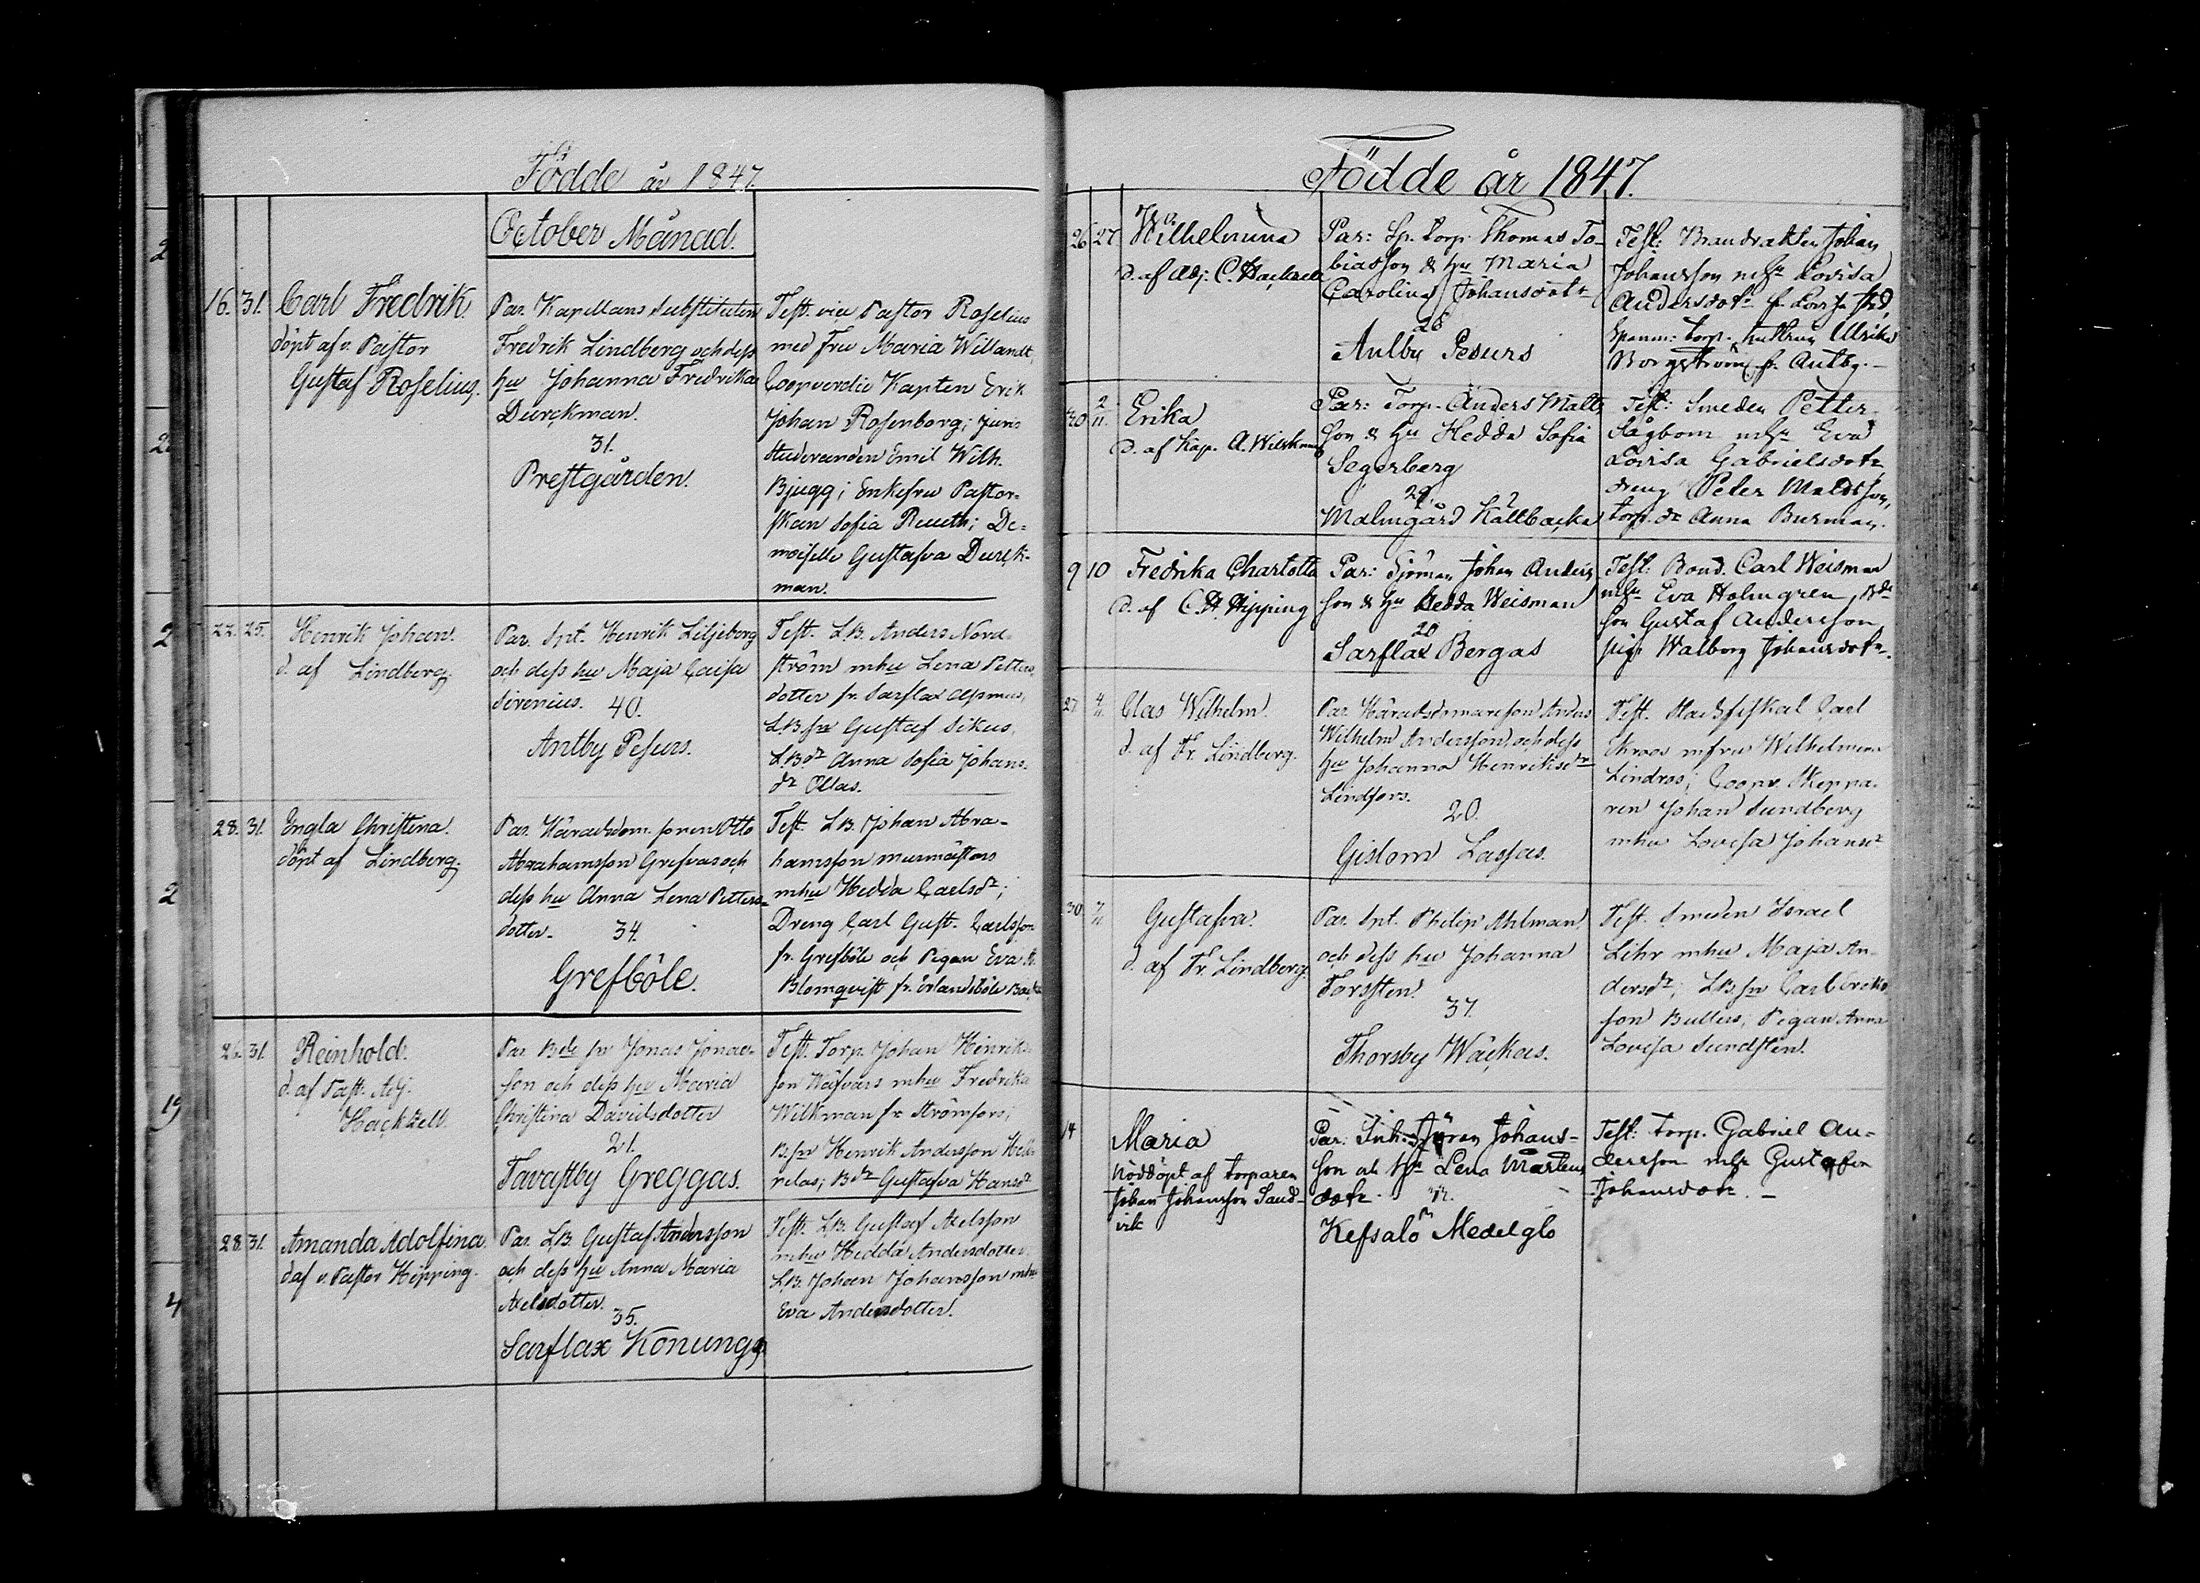 Födde år 1847.
October Månad.
16. 31. Carl Fredrik.
döpt af v. Pastor
Gustaf Roselius.
Par. Kapellans substituten
Fredrik Lindberg och dess
hu Johanna Fredrika
Durckman.
31.
Prestgården.
Test. vice Pastor Roselius
med Fru Maria Willandt,
Coopverdie Kapten Erik
Johan Rosenborg; juris
studeranden Emil Wilh.
Bjugg; Enkefru Pastor-
skan Sofia Reuth; De-
moiselle Gustafva Durck-
man.
22. 25. Henrik Johan.
d. af Lindberg.
Par. Spt. Henrik Liljeberg
och dess hu Maja Caisa
Sirenius. 40.
Antby Pesurs.
Test. LB. Anders Nord-
ström mhu Lena Petters
dotter fr. Sarflax
LB. sn Gustaf Sikus,
LBdr Anna Sofia Johans-
dr Ollas.
28. 31. Engla Christina.
döpt af Lindberg.
Par. Häradsdom. sonen Otto
Abrahamsson Grefvas och
dess hu Anna Lena Petters-
dotter. 34.
Grefböle.
Test. LB. Johan Abra-
hamsson murmästars
mhu Hedda Carlsdr;
Dreng Carl Gust. Carlsson
fr. Grefböle och Pigan Eva
Blomqvist fr.
26. 31. Reinhold.
d. af Past. Adj.
Hackzell.
Par. Bde sn Jonas Jonas-
son och dess hu Maria
Christina Davidsdotter
21.
Tavastby Greggas.
Test. Torp. Johan Henriks-
son mhu Fredrika
Wilkman fr Strömfors;
B. sn Henrik Andersson
Bdr Gustafva Hansdr
28. 31. Amanda Adolfina.
d. af v. Pastor Hipping.
Par. LB. Gustaf Andersson
och dess hu Anna Maria
Axelsdotter.
35.
Sarflax Konungs
Test. LB. Gustaf Axelsson
mhu Hedda Andersdotter.
LB. Johan Johansson mhu
Eva Andersdotter.
Födde år 1847.
26 27 Wilhelmina
D. af Adj. C. Hackzell
Par: Sp. Torp. Thomas To-
biasson & hu Maria
Carolina Johansdotr
28
Antby Pesurs
Test: Johan
Johansson mhr Lovisa
Andersdotr
Torp. Ulrika
Borgström fr. Antby.
30 2/11. Erika
D. af Kap. A. Wilkman
Par: Torp. Anders Matts
son & hu Hedda Sofia
Segerberg
29.
Malmgård Källbacka
Test: Smeden Petter
Sågbom mhr Eva
Lovisa Gabrielsdotr
dreng Peter Mattsson,
torp. dr Anna Burman.
9 10 Fredrika Charlotta
D. af C. H. Hipping
Par: Sjöman Johan Anders
son & hu Hedda Weisman
20
Sarflax Bergas
Test: Bond. Carl Weisman
mhu Eva Holmgren, Bde
son Gustaf Andersson
pig. Walborg Johansdotr.
27 4/11 Clas Wilhelm.
d. af Fr. Lindberg.
Par. Häradsdomaresson Anders
Wilhelm Andersson, och dess
hu Johanna Henriksdr
Lindfors.
20.
Gislom Lassas.
Test. Stadsfiskal Carl
mfru Wilhelmina
Lindros; Coopv. Skeppa-
ren Johan Sundberg
mhu Lovisa Johansdr
30 7/11 Gustafva.
d. af Fr. Lindberg.
Par. Spt. Philip Ahlman
och dess hu Johanna
Forssten.
37.
Thorsby Wäckas.
Test. Smeden Israel
Lihr mhu Maja An-
dersdr; LB. sn Carl Eriks
son Bullers, Pigan Anna
Lovisa Sundsten.
14 Maria
Nöddöpt af torparen
Johan Johansson Sand-
vik
Par: Inh. Göran Johans-
son ok hu Lena Mårtens
dotr.
Kefsalö Medelglo
Test: Torp. Gabriel An-
dersson mhr Gustafva
Johansdotr. —